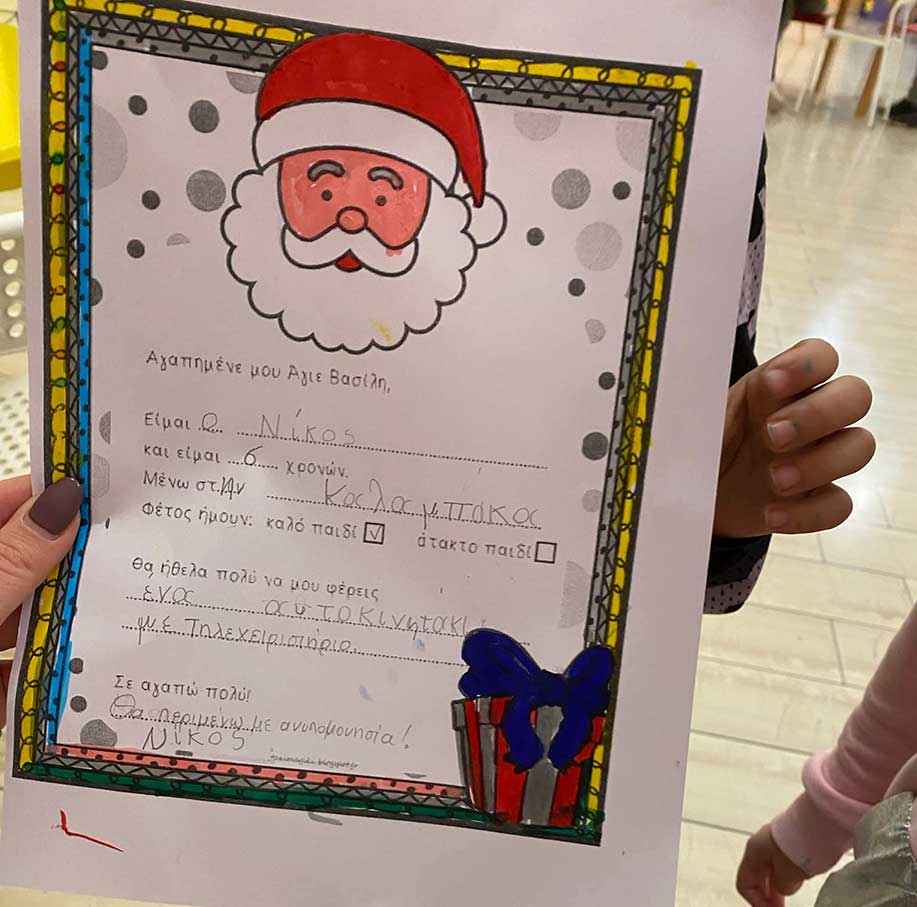 Αγαπημένε μου Άγιε Βασίλη,
Είμαι ο Νίκος
και είμαι 6 χρονών.
Μένω στην Καλαμπάκα
Φέτος ήμουν: καλό παιδί √ άτακτο παιδί
Θα ήθελα πολύ να μου φέρεις
ένας αυτοκινητάκι
με τηλεχειριστήριο.
Σε αγαπώ πολύ!
Θα περιμένω με ανυπομονησία!
Νίκος